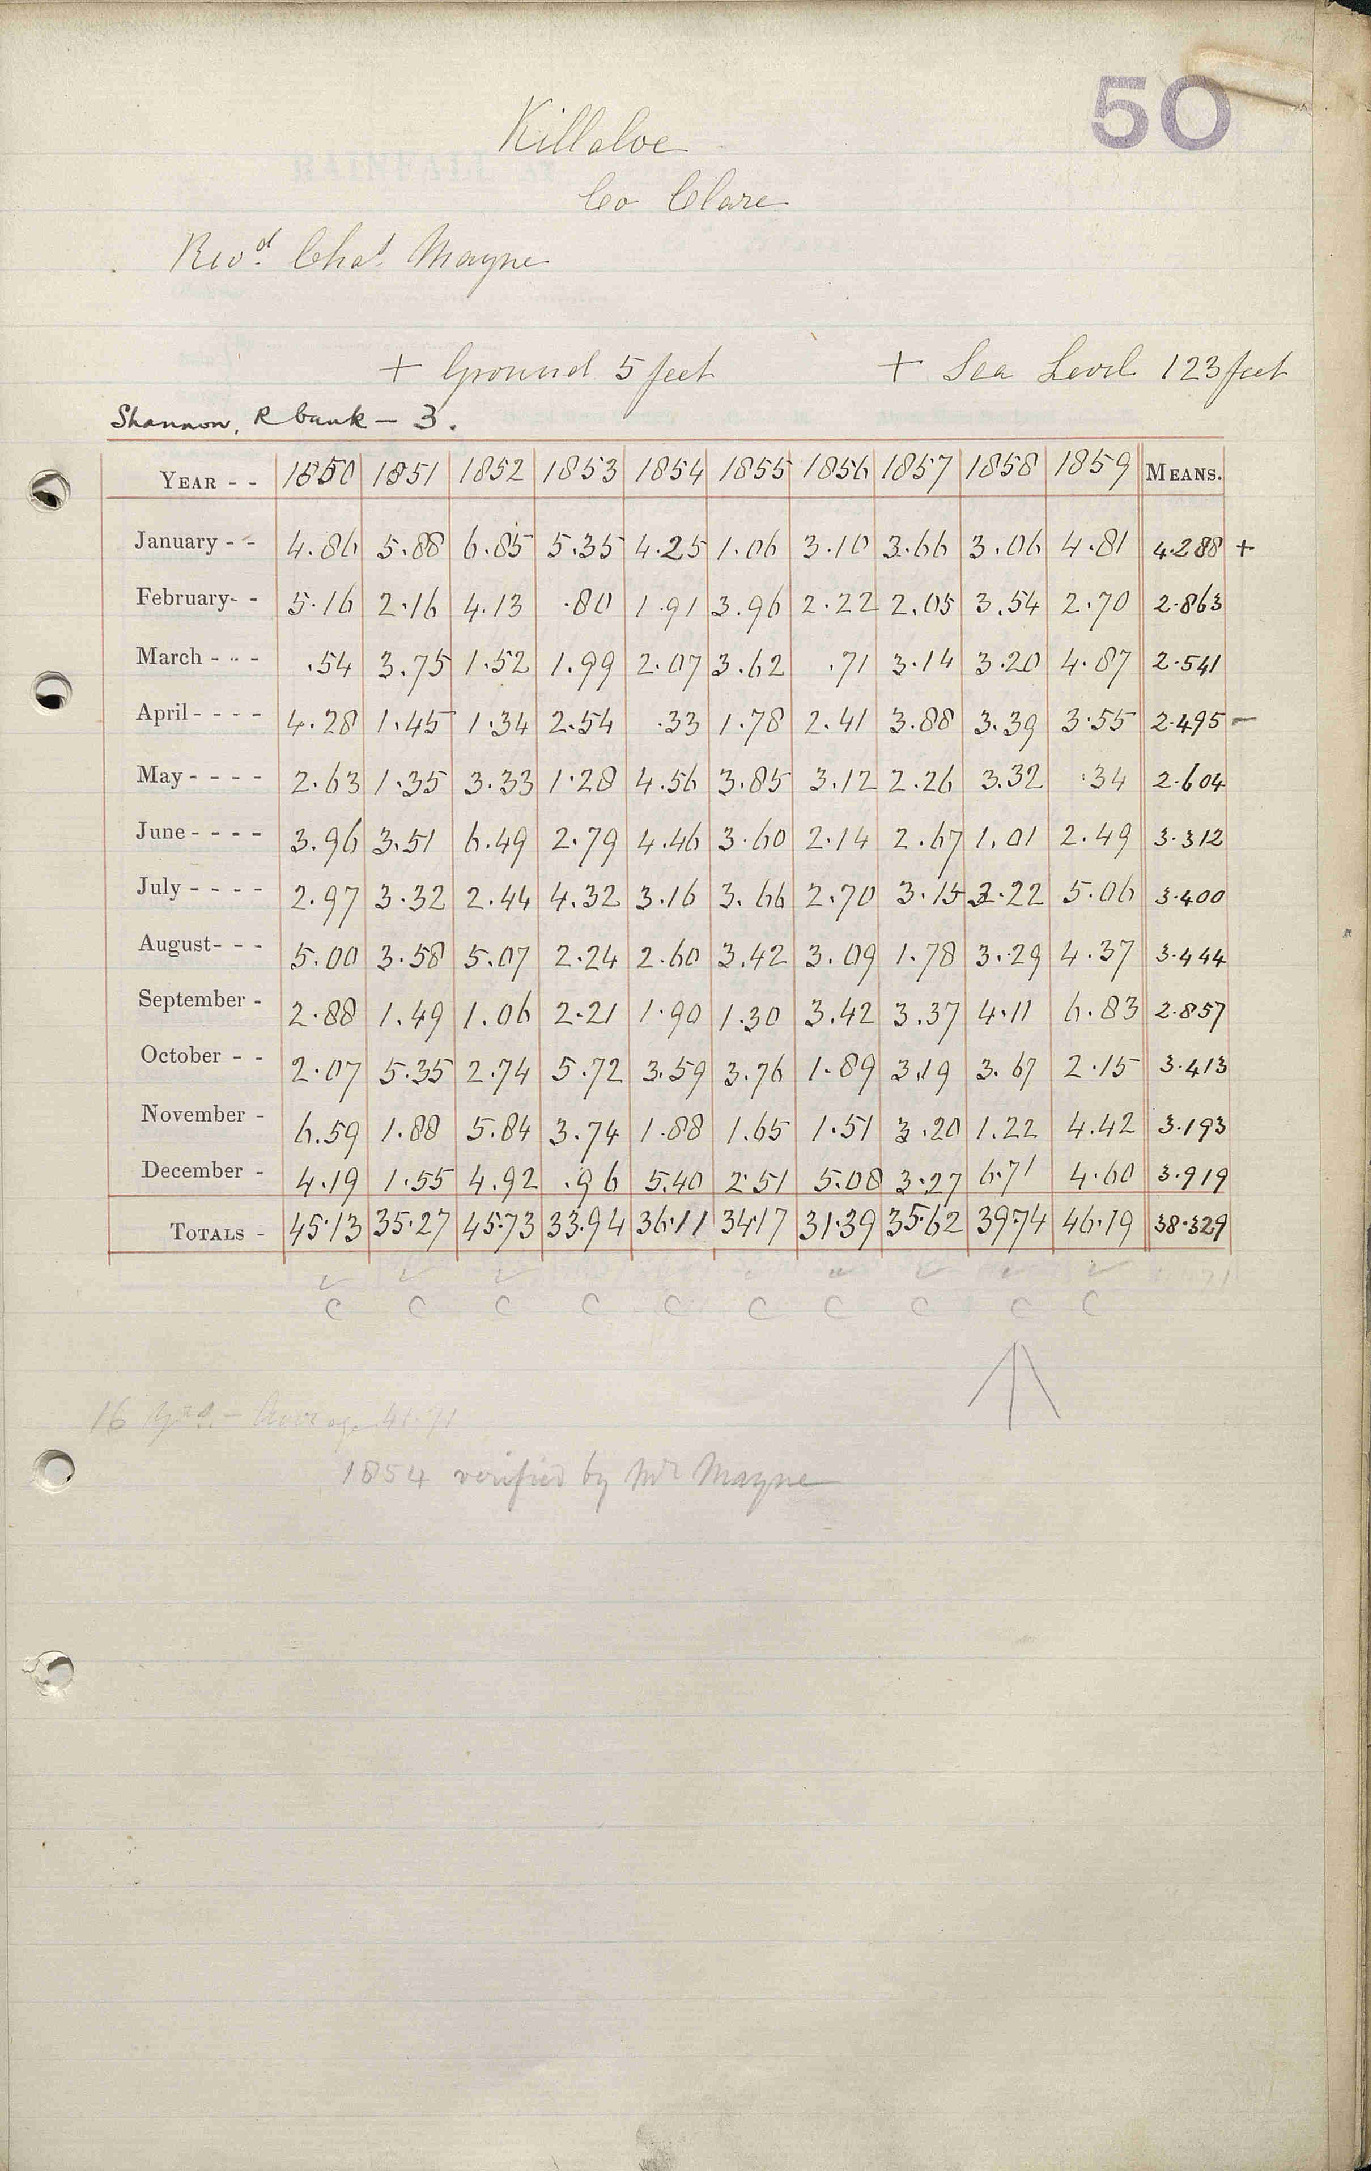 50
Killaloe
Co Clare
Revd. Chas. Mayne
+ Ground 5 feet + Sea Level 123 feet
Shannon, R bank — 3.
YEAR - - 1850 1851 1852 1853 1854 1855 1856 1857 1858 1859 MEANS.
January - - 4.86 5.88 6.85 5.35 4.25 1.06 3.10 3.66 3.06 4.81 4.288 +
February- - 5.16 2.16 4.13 .80 1.91 3.96 2.22 2.05 3.54 2.70 2.863
March - - - .54 3.75 1.52 1.99 2.07 3.62 .71 3.14 3.20 4.87 2.541
April - - - - 4.28 1.45 1.34 2.54 .33 1.78 2.41 3.88 3.39 3.55 2.495 –
May - - - - 2.63 1.35 3.33 1.28 4.56 3.85 3.12 2.26 3.32 .34 2.604
June - - - - 3.96 3.51 6.49 2.79 4.46 3.60 2.14 2.67 1.01 2.49 3.312
July - - - - 2.97 3.32 2.44 4.32 3.16 3.66 2.70 3.15 3.22 5.06 3.400
August- - - 5.00 3.58 5.07 2.24 2.60 3.42 3.09 1.78 3.29 4.37 3.444
September - 2.88 1.49 1.06 2.21 1.90 1.30 3.42 3.37 4.11 6.83 2.857
October - - 2.07 5.35 2.74 5.72 3.59 3.76 1.89 3.19 3.67 2.15 3.413
November - 6.59 1.88 5.84 3.74 1.88 1.65 1.51 3.20 1.22 4.42 3.193
December - 4.19 1.55 4.92 .96 5.40 2.51 5.08 3.27 6.71 4.60 3.919
TOTALS - 45.13 35.27 45.73 33.94 36.11 34.17 31.39 35.62 39.74 46.19 38.329
C C C C C C C C C C
16 yrs. – Average 41.71
1854 verified by Mr Mayne